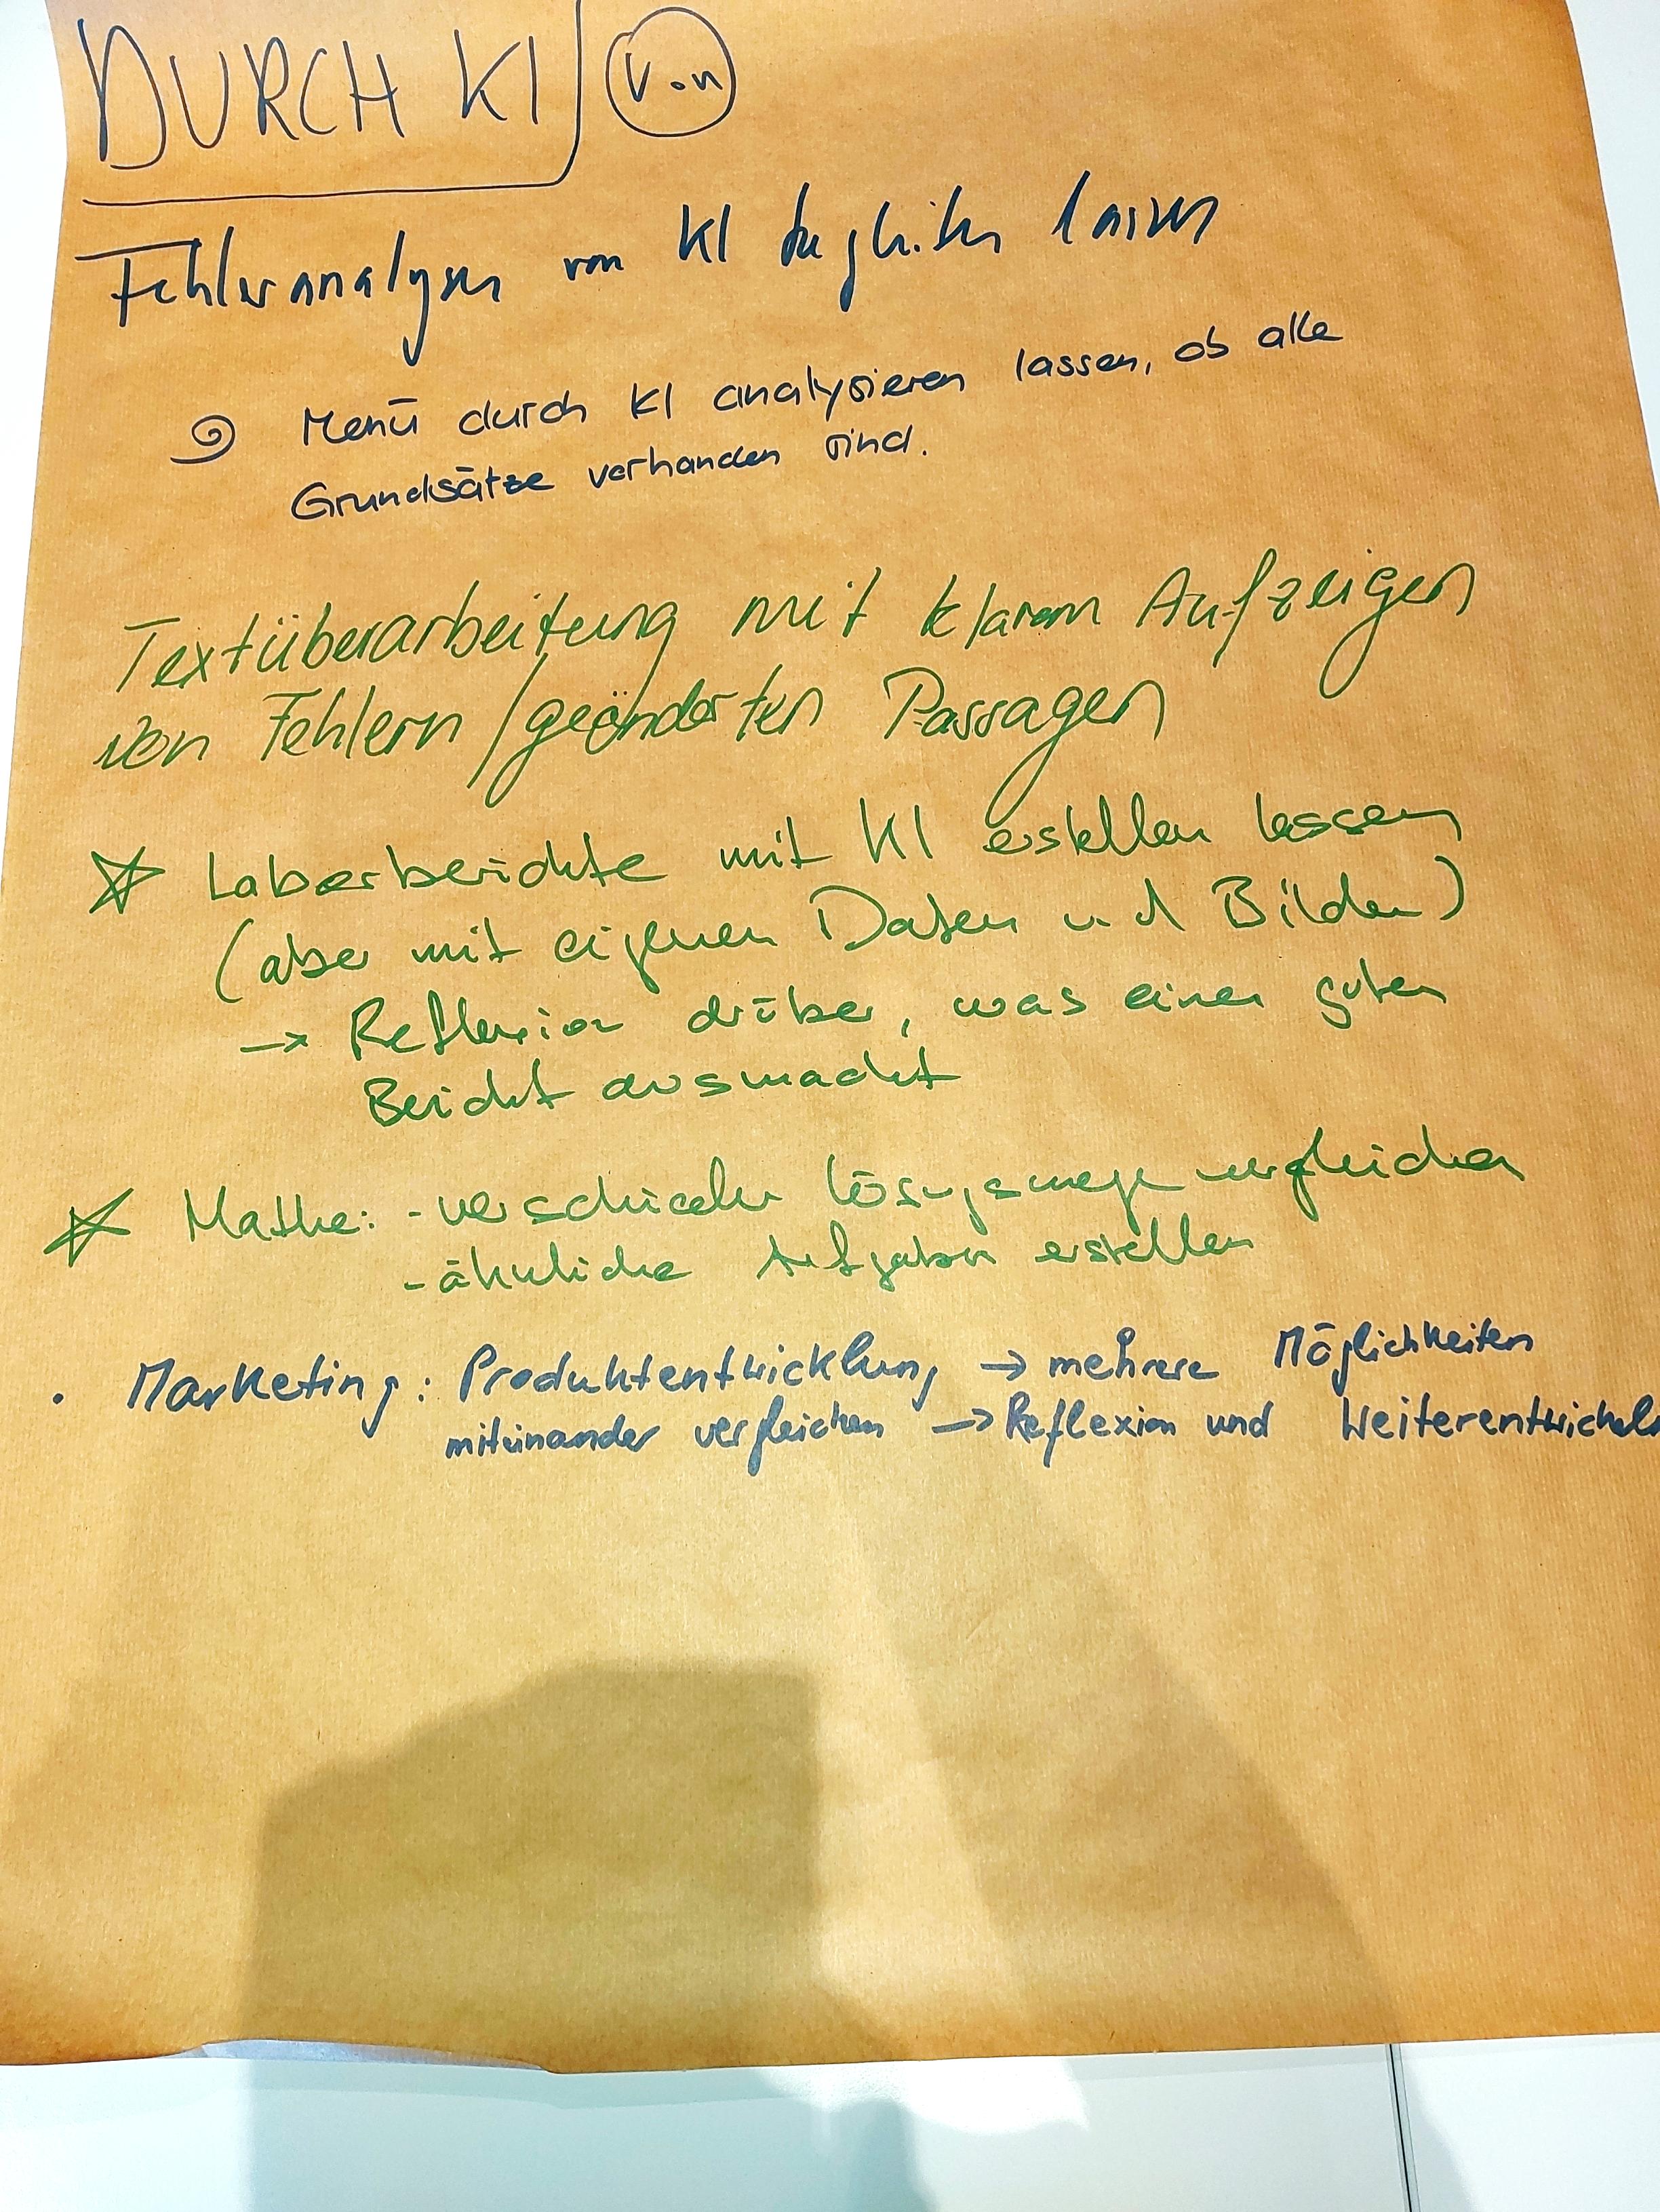 DURCH KI
von
Fehleranalysen von KI begleiten lassen
Menü durch KI analysieren lassen, ob alle
Grundsätze vorhanden sind.
Textüberarbeitung mit klarem Aufzeigen
von Fehlern / geänderten Passagen
Laborberichte mit KI erstellen lassen
(aber mit eigenen Daten und Bilder)
→ Reflexion drüber, was einen guten
Bericht ausmacht
Mathe: - verschiedene Lösungswege vergleichen
- ähnliche Aufgaben erstellen
• Marketing: Produktentwicklung → mehrere Möglichkeiten
miteinander vergleichen → Reflexion und Weiterentwickeln